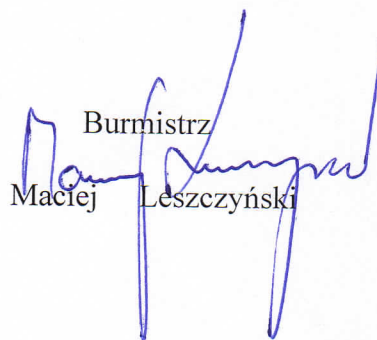 Burmistrz
Maciej Leszczyński